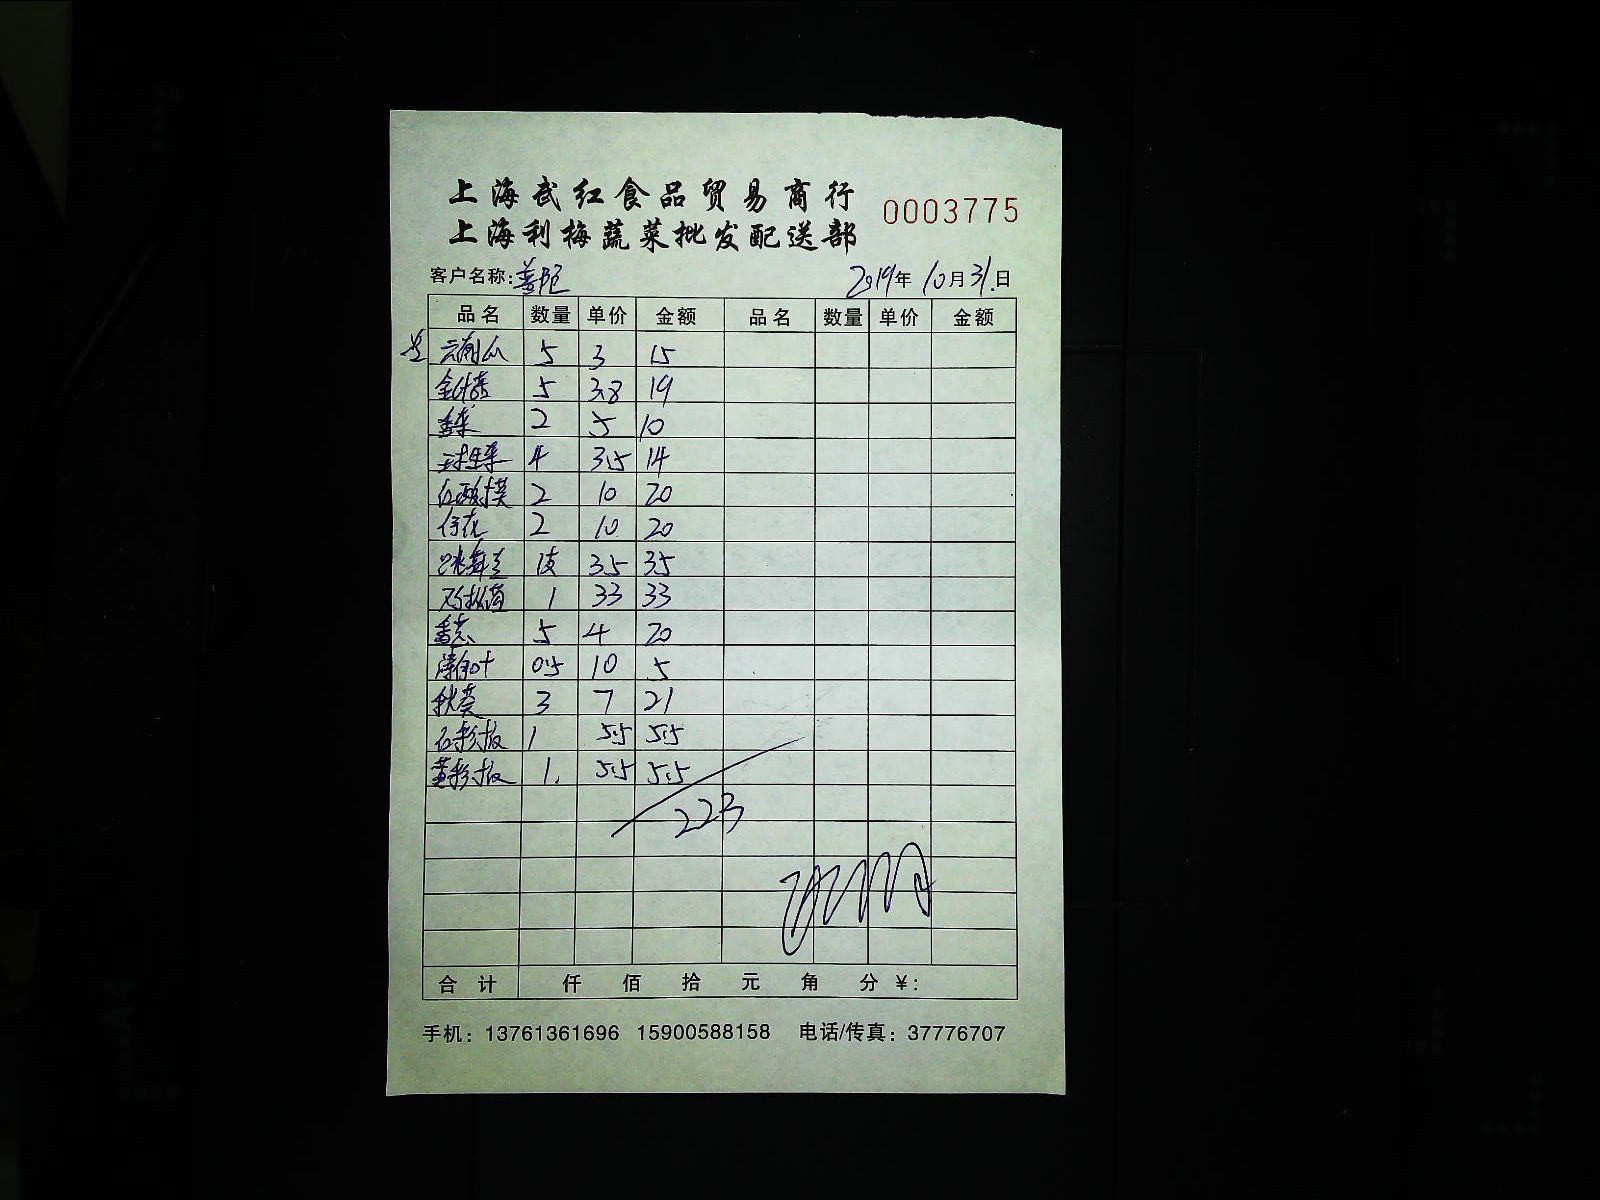 上海武红食品贸易商行
0003775
上海利梅蔬菜批发配送部
客户名称: 2019年10月31日
品名 数量 单价 金额 品名 数量 单价 金额
5 3 15
金针菇 5 3.8 19
香菜 2 5 10
球生菜 4 3.5 14
2 10 20
2 10 20
跳舞兰 35 35
1 33 33
香葱 5 4 20
0.5 10 5
秋葵 3 7 21
红彩椒 1 5.5 5.5
黄彩椒 1. 5.5 5.5
223
合计 仟 佰 拾 元 角 分 ¥:
手机: 13761361696 15900588158 电话/传真: 37776707